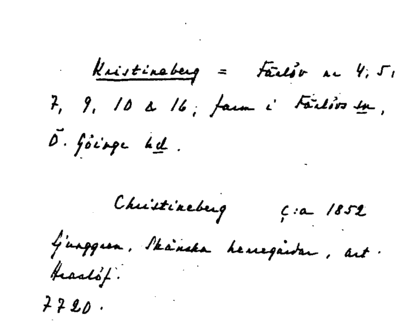 Kristineberg = Färlöv nr 4, 5,
7, 9, 10 & 16; farm i Färlövs sn,
Ö. Göinge hd.
Christineberg c:a 1852
Ljunggren, Skånska herregårdar, art.
Araslöf.
7720.